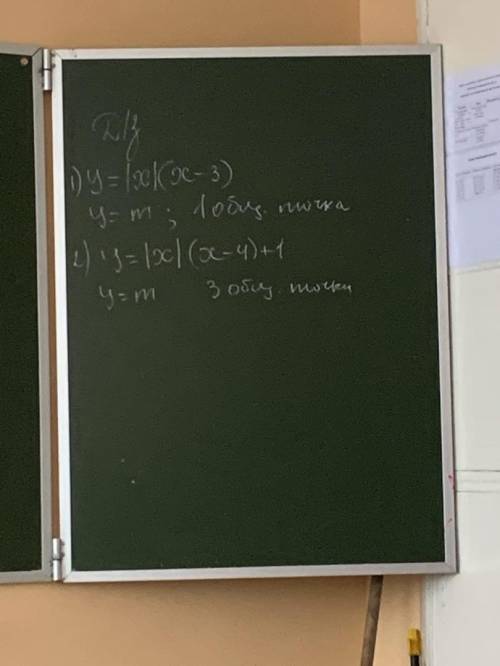 Д/з
1) y = |x|(x-3)
y = m ; 1 общ. точка
2) y = |x|(x-4)+1
y = m 3 общ. точки